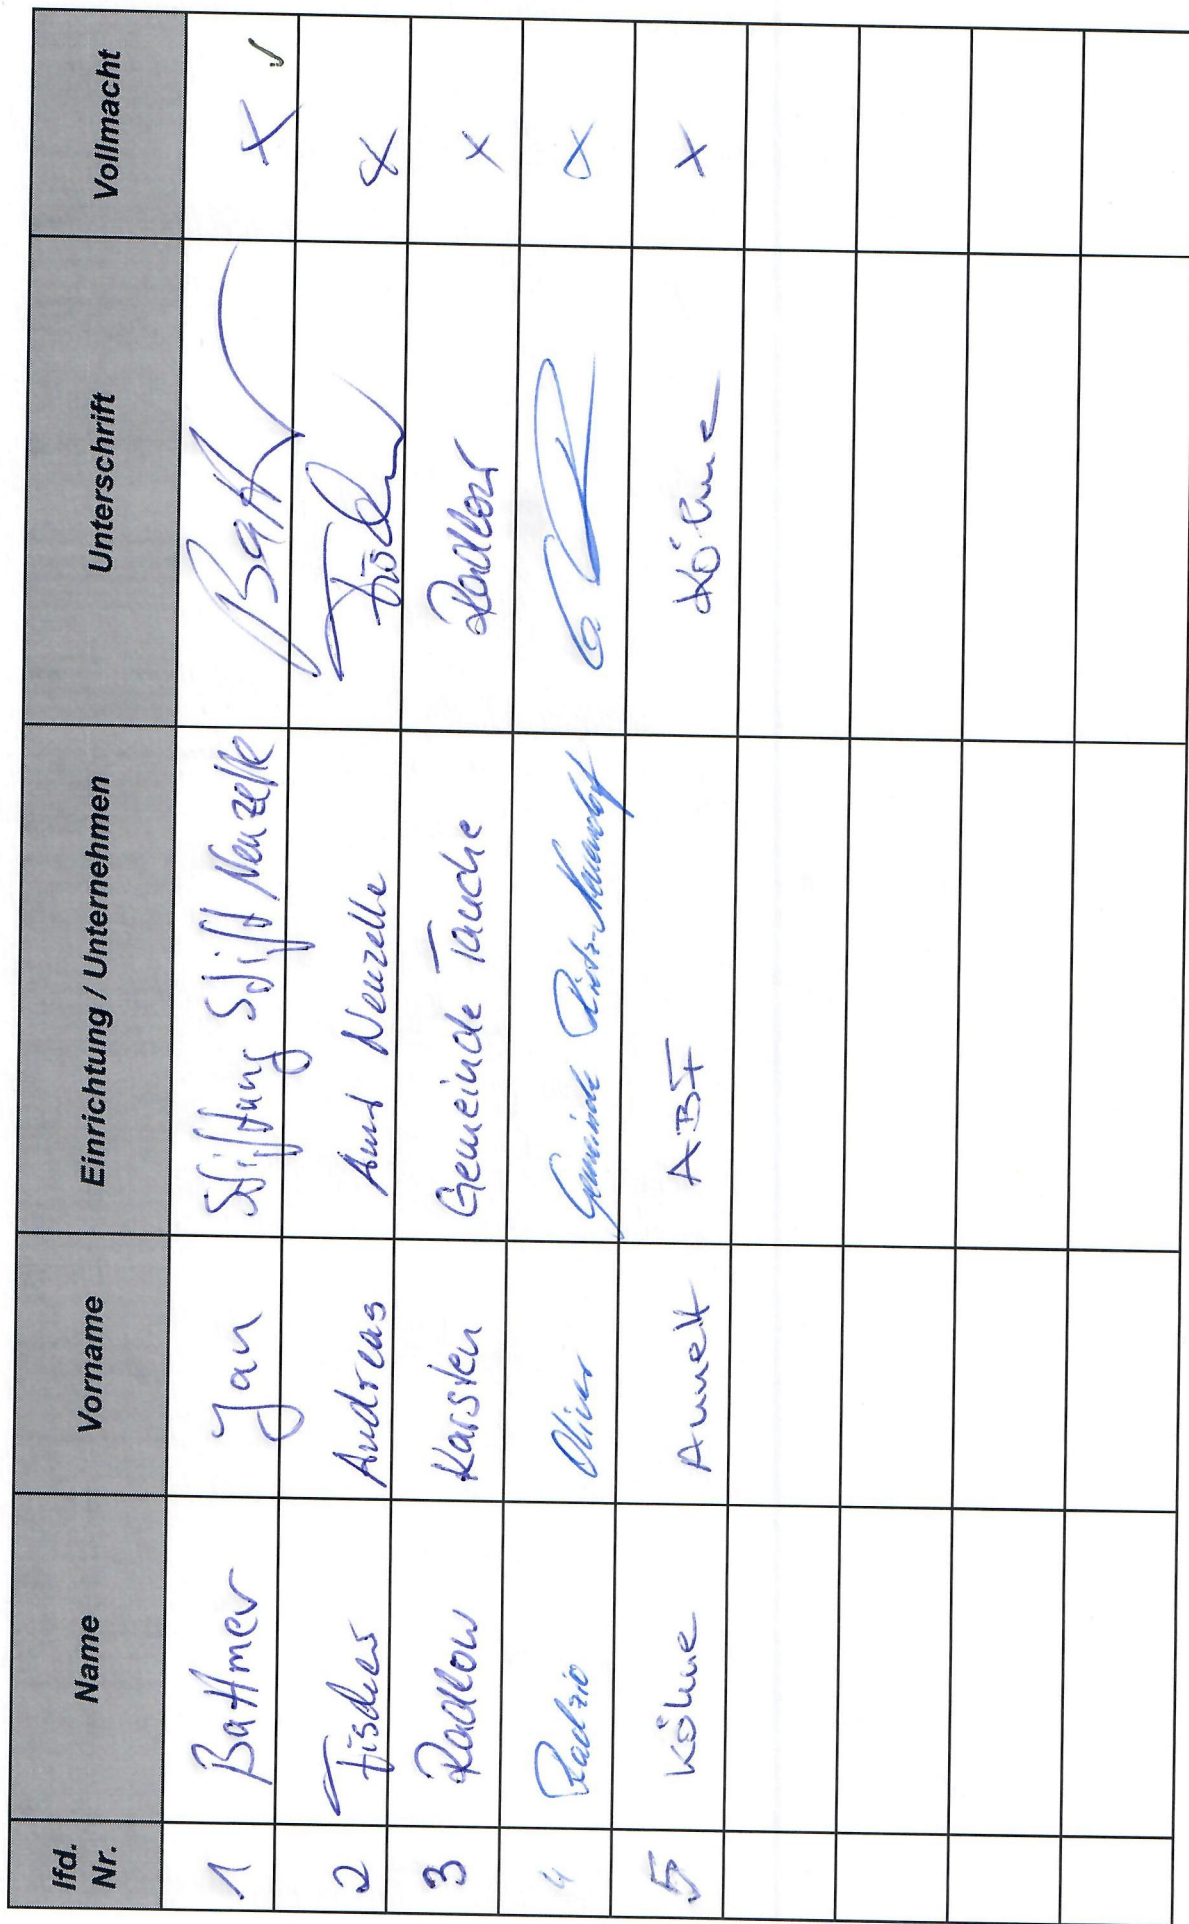 lfd. Nr. Name Vorname Einrichtung / Unternehmen Unterschrift Vollmacht
1 Battmer Jan Stiftung Stift Neuzelle Batt X ✓
2 Fischer Andreas Amt Neuzelle Fischer X
3 Radlow Karsten Gemeinde Tauche Radlow X
4 Radzio Oliver Gemeinde Rietz-Neuendorf X
5 Köhne Annett Köhne X